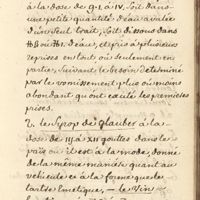 à la dose de g.I. à IV. soit dans
une petite quantité d'eau avalée
d'un seul trait, soit dissous dans
d'eau, et pris à plusieurs
reprises en tout où seulement en
partie, suivant le besoin déterminé
par le vomissement plus où moins
abondant qu'ont excité les premières
prises.
2, le Syrop de Glauber à la
dose de III à XII gouttes dans les
païs où il est à la mode, donné
de la même manière quant au
vehicule et à la forme que le
tartre Emetique, — le Vin